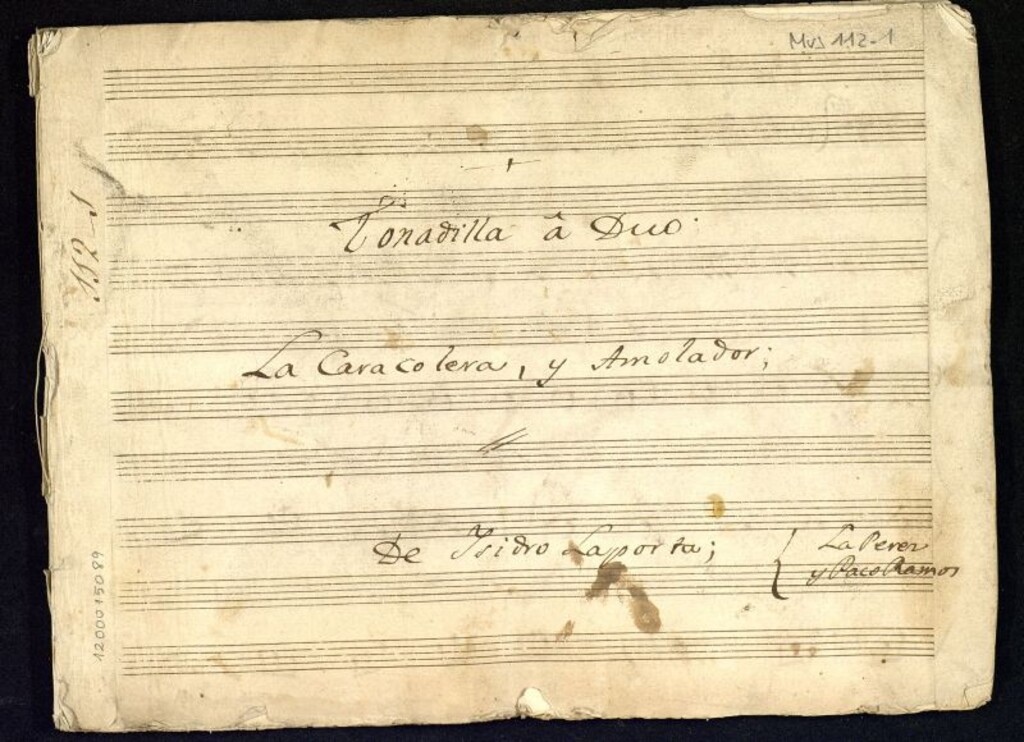 Mus 112-1
Tonadilla â Duo.
La Caracolera, y Amolador;
De Isidro Laporta;
La Perez
y Paco Ramos
112-1
1200015089